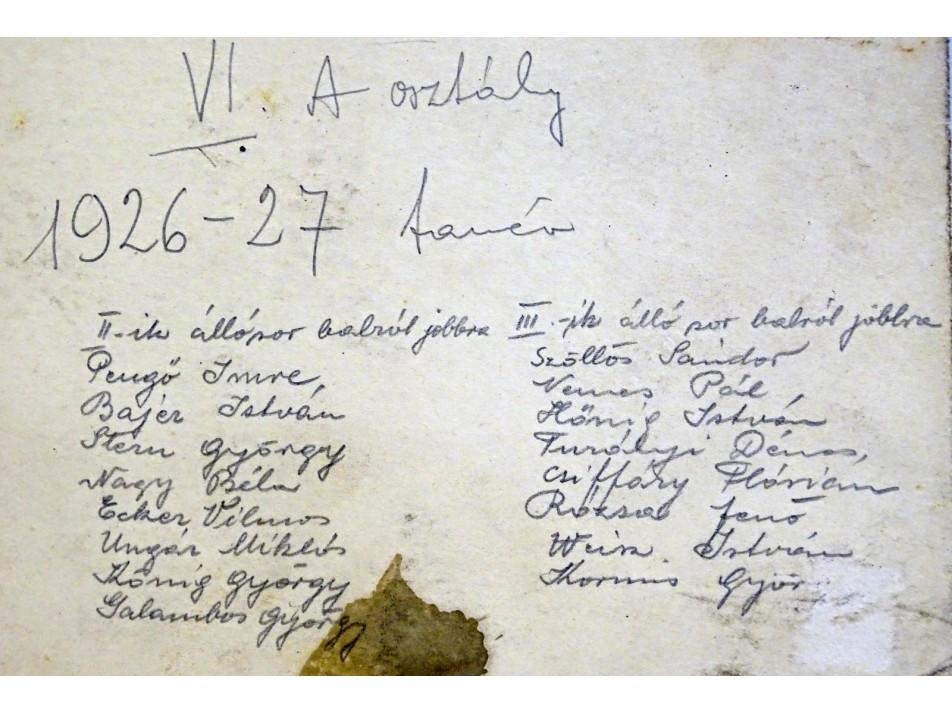 VI. A osztály
1926-27 tanév
II-ik állósor balról jobbra
Pengő Imre,
Bajér István
Stern György
Nagy Béla
Ecker Vilmos
Ungár Miklós
Kőnig György
Galambos György
III.-ik álló sor balról jobbra
Szöllős Sándor
Nemes Pál,
Hőnig István
Turányi Dénes,
Csiffáry Flórián
Rózsa Jenő
Weisz István
Kormis Györ